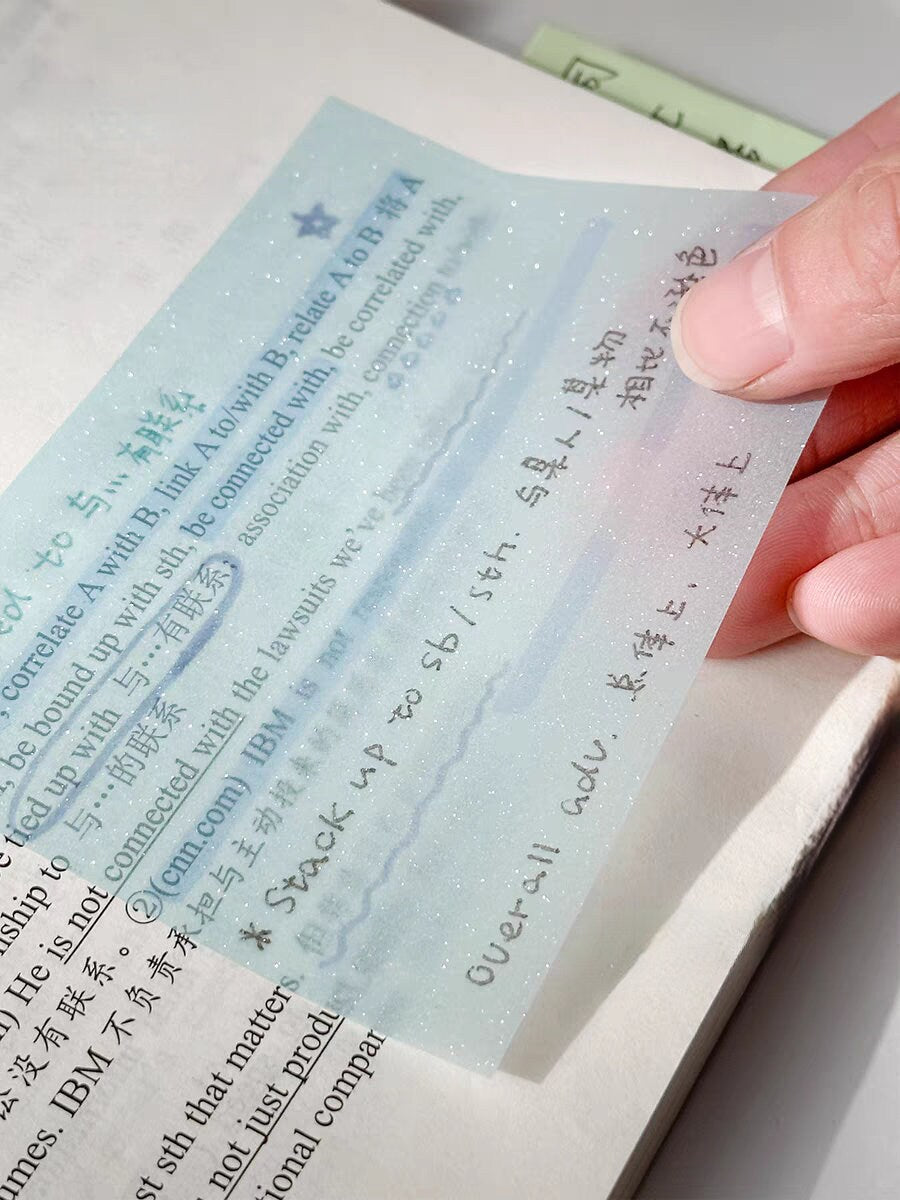 ed to 与...有联系
, correlate A with B, link A to/with B, relate A to B 将 A
, be bound up with sth, be connected with, be correlated with,
tied up with 与…有联系; association with, connection
nship to 与…的联系
He is not connected with the lawsuits we've
讼没有联系。②(cnn.com) IBM is not
umes. IBM 不负责承担与主动投
st sth that matters. 但
not just produ
tional compan
* Stack up to sb/sth. 与某人/某物
相比不逊色
Overall adv. 总体上、大体上